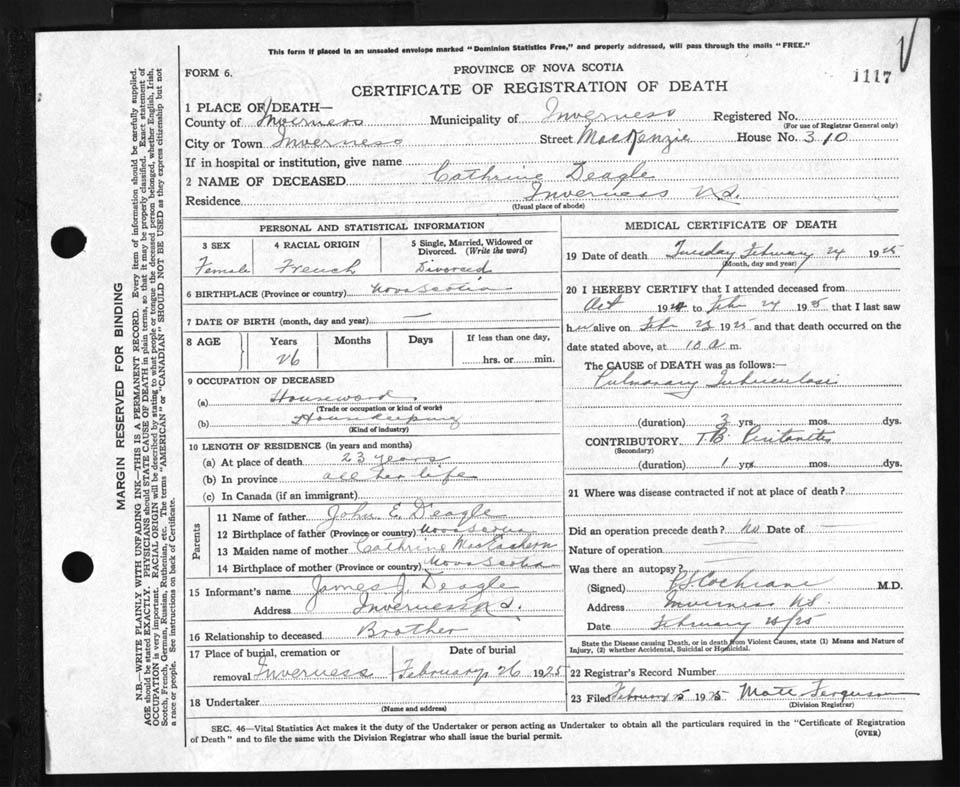 This form if placed in an unsealed envelope marked "Dominion Statistics Free," and properly addressed, will pass through the mails "FREE."
FORM 6.
PROVINCE OF NOVA SCOTIA
1117
CERTIFICATE OF REGISTRATION OF DEATH
1 PLACE OF DEATH—
County of Inverness Municipality of Inverness Registered No.
(For use of Registrar General only)
City or Town Inverness Street MacKenzie House No. 310
If in hospital or institution, give name
2 NAME OF DECEASED Cathrine Deagle
Residence Inverness N.S.
(Usual place of abode)
PERSONAL AND STATISTICAL INFORMATION
3 SEX 4 RACIAL ORIGIN 5 Single, Married, Widowed or Divorced. (Write the word)
Female French Divorced
6 BIRTHPLACE (Province or country) Nova Scotia
7 DATE OF BIRTH (month, day and year) —
8 AGE Years Months Days If less than one day,
26 hrs. or min.
9 OCCUPATION OF DECEASED
(a)
(Trade or occupation or kind of work)
(b) Housekeeping
(Kind of industry)
10 LENGTH OF RESIDENCE (in years and months)
(a) At place of death 23 years
(b) In province all her life
(c) In Canada (if an immigrant)
Parents
11 Name of father John E. Deagle
12 Birthplace of father (Province or country) Nova Scotia
13 Maiden name of mother Cathrine
14 Birthplace of mother (Province or country) Nova Scotia
15 Informant's name James J. Deagle
Address Inverness N.S.
16 Relationship to deceased Brother
17 Place of burial, cremation or Date of burial
removal Inverness February 26 1925
18 Undertaker
(Name and address)
MEDICAL CERTIFICATE OF DEATH
19 Date of death Tuesday February 24 1925
(Month, day and year)
20 I HEREBY CERTIFY that I attended deceased from
Oct 192 to Feb 24 1925 that I last saw
her alive on Feb 23 1925 and that death occurred on the
date stated above, at 10 a m.
The CAUSE OF DEATH was as follows:—
Pulmonary Tuberculosis
(duration) 3 yrs. mos. dys.
CONTRIBUTORY T.B. Peritonitis
(Secondary)
(duration) 1 yrs. mos. dys.
21 Where was disease contracted if not at place of death?
Did an operation precede death? No Date of —
Nature of operation —
Was there an autopsy?
(Signed) Cochrane M.D.
Address Inverness N.S.
Date February 25/25
State the Disease causing Death, or in death from Violent Causes, state (1) Means and Nature of
Injury, (2) whether Accidental, Suicidal or Homicidal.
22 Registrar's Record Number
23 Filed February 25 1925 Matt Ferguson
(Division Registrar)
SEC. 46—Vital Statistics Act makes it the duty of the Undertaker or person acting as Undertaker to obtain all the particulars required in the "Certificate of Registration
of Death" and to file the same with the Division Registrar who shall issue the burial permit.
(OVER)
MARGIN RESERVED FOR BINDING
N.B.—WRITE PLAINLY WITH UNFADING INK—THIS IS A PERMANENT RECORD. Every item of information should be carefully supplied.
AGE should be stated EXACTLY. PHYSICIANS should STATE CAUSE OF DEATH in plain terms, so that it may be properly classified. Exact statement of
OCCUPATION is very important. RACIAL ORIGIN will be described by stating to what people or tongue the deceased person belonged, whether English, Irish,
Scotch, French, German, Russian, Ruthenian, etc. The terms "AMERICAN" or "CANADIAN" SHOULD NOT BE USED as they express citizenship but not
a race or people. See instructions on back of Certificate.